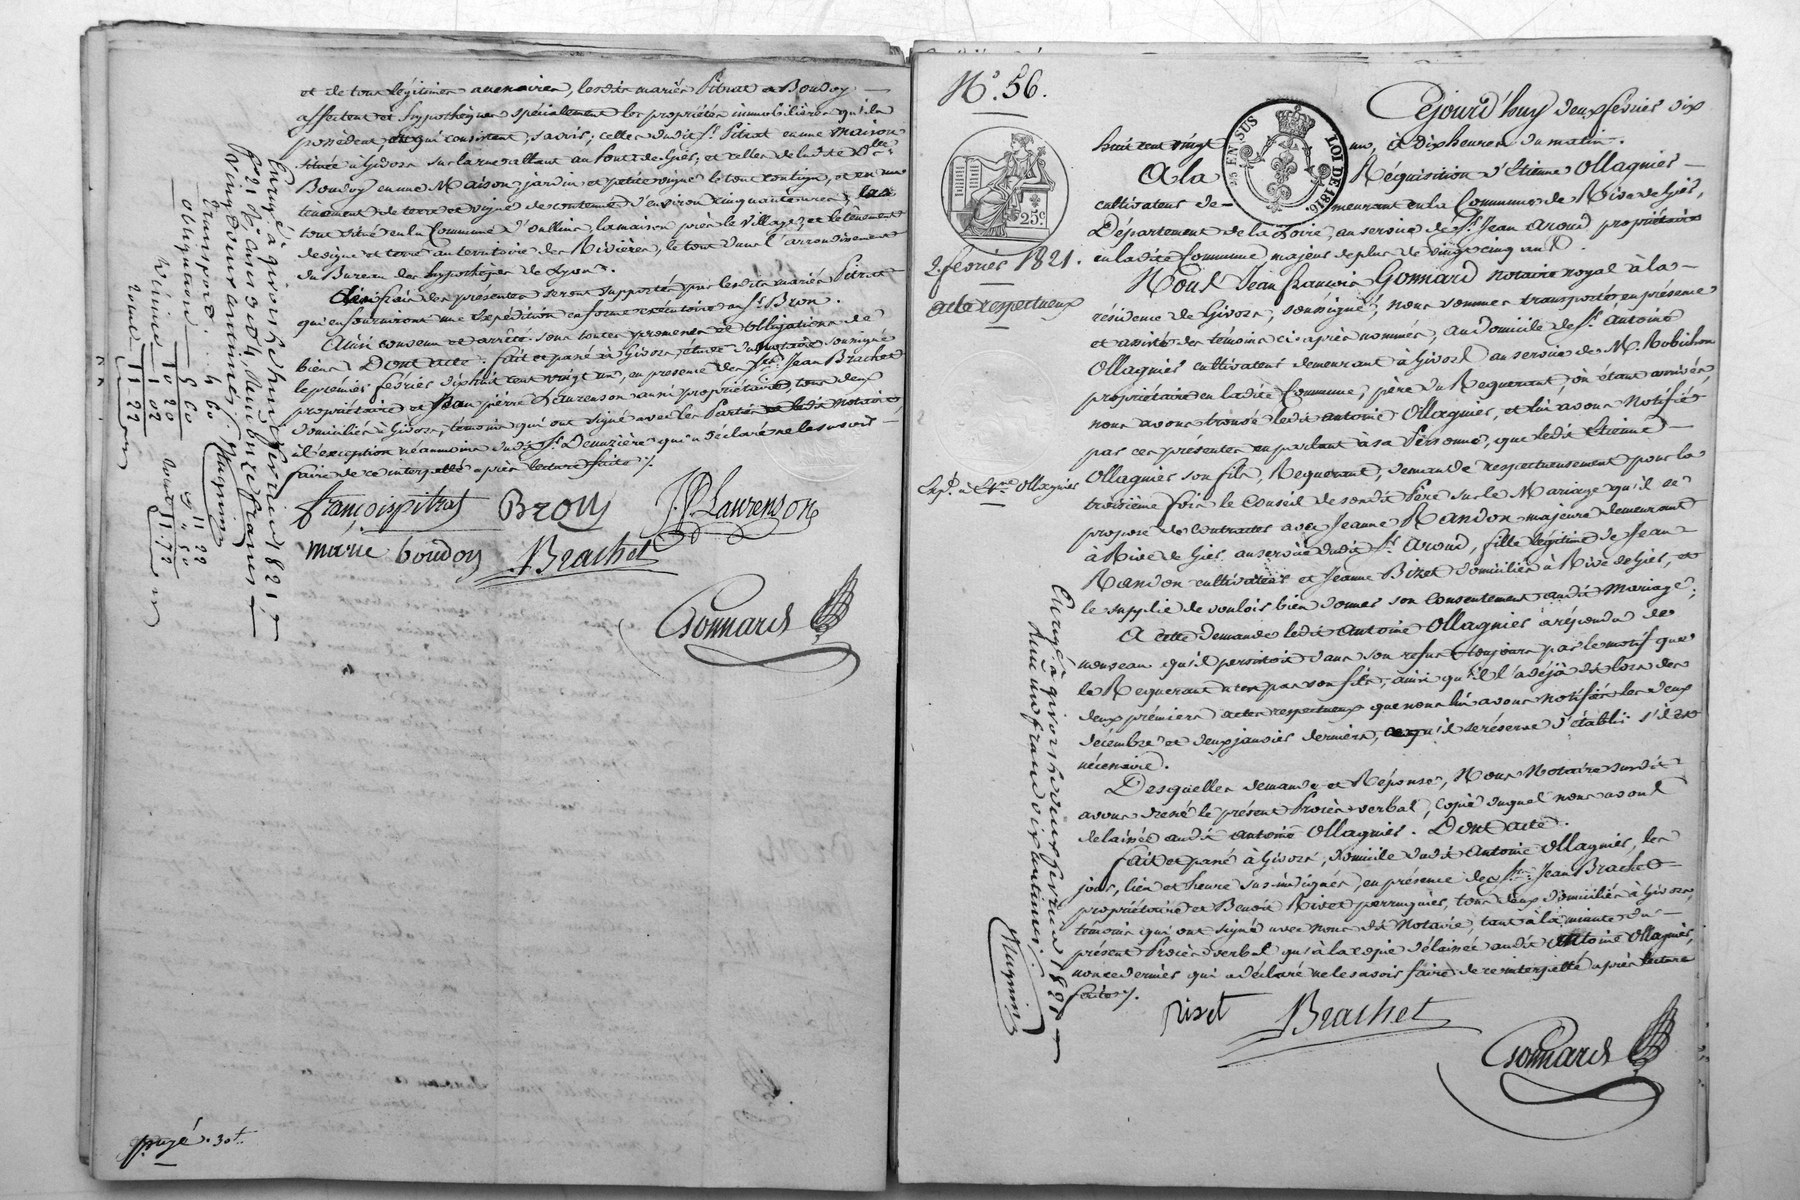 et de tous légitimes accessoires, lesdits mariés Pitrat et Boudoy
affectent et hypothèquent spécialement les propriétés immobilières qu'ils
possèdent et qui consistent, savoir; celles dudit Sr. Pitrat en une maison
située à Givors sur la rue allant au Pont de Gier, et celles de ladite Dlle.
Boudoy en une Maison, jardin et petite vigne le tout contigu, et en un
tènement de terre et vigne de contenue d'environ cinquante ares, le
tout situé en la Commune d'oullins, la maison près le Village, et le tènement
de vigne et terre au territoire des Rivières, le tout dans l'arrondissement
du Bureau des hypothèques de Lyon.
Les frais des présentes seront supportés par lesdits mariés Pitrat
qui en fourniront une expédition en forme exécutoire au Sr. Bron.
Ainsi convenu et arrêté sous toutes promesses et obligations de
biens Dont acte. fait et passé à Givors, étude du notaire soussigné
le premier février dix huit cent vingt un, en présence des Srs. Jean Brachet
propriétaire et Jean pierre Laurenson aussi propriétaire, tous deux
domiciliés à Givors, témoins qui ont signé avec les Parties et ledit Notaire,
à l'exception néanmoins dudit Sr. Decuzière qui a déclaré ne le savoir
faire de ce interpellé après lecture faite.
françois pitrat Bron J.P. Laurenson
marie boudoy Brachet
Gonnard
Enregé. à givors le deux février 1821
Reçu
obligation 9 60
transport 4 60
Mugnin
payé. 30f.
N°. 56.
25c.
LOI DE 1816.
EN SUS
2 février 1821.
acte respectueux
Exp. à Etne. Ollagnier
Cejourd'huy deux février dix
huit cent vingt un, à dix heures du matin.
A la Réquisition d'Etienne Ollagnier
cultivateur demeurant en la Commune de Rive de Gier,
Département de la Loire, au service de Sr. Jean Aroud propriétaire
en ladite Commune, majeur de plus de vingt cinq ans
Nous Jean François Gonnard notaire royal à la
résidence de Givors, soussigné, nous sommes transportés en présence
et assisté des témoins ci après nommés, au domicile de Sr. Antoine
Ollagnier cultivateur demeurant à Givors au service de Mr. Robichon
propriétaire en ladite Commune, père du Requérant, où étant arrivés
nous avons trouvé ledit antoine Ollagnier, et lui avons Notifié
par ces présentes en parlant à sa Personne, que ledit Etienne
Ollagnier son fils, Requérant, demande respectueusement pour la
troisième fois le Conseil de sondit Père sur le Mariage qu'il se
propose de contracter avec Jeanne Randon majeure demeurant
à Rive de Gier au service dudit Sr. Aroud, fille légitime de Jean
Randon cultivateur et Jeanne Bizet domiciliés à Rive de Gier, et
le supplie de vouloir bien donner son Consentement audit Mariage;
A cette demande ledit Antoine Ollagnier a répondu de
nouveau qu'il persistoit dans son refus toujours par le motif que
le Requérant n'est pas son fils, ainsi qu'il l'a déjà dit lors des
deux premiers actes respectueux que nous lui avons Notifiés les deux
décembre et deux janvier derniers, ce qu'il se réserve d'établir s'il est
nécessaire.
Desquelles demande et Réponse, Nous Notaire susdit
avons dressé le présent Procès verbal, copie duquel nous avons
délaissée audit antoine Ollagnier. Dont acte.
fait et passé à Givors, domicile dudit Antoine Ollagnier, les
jour, lieu et heure sus-indiqués, en présence des Srs. Jean Brachet
propriétaire et Benoit Rivet perruquier, tous deux domiciliés à Givors,
témoins qui ont signé avec nous dit Notaire, tant à la minute du
présent Procès verbal qu'à la copie délaissée audit Antoine Ollagnier,
non ce dernier qui a déclaré ne le savoir faire de ce interpellé après lecture
faite.
rivet Brachet
Gonnard
Enregé. à givors le deux février 1821
Reçu un franc dix centimes.
Mugnin